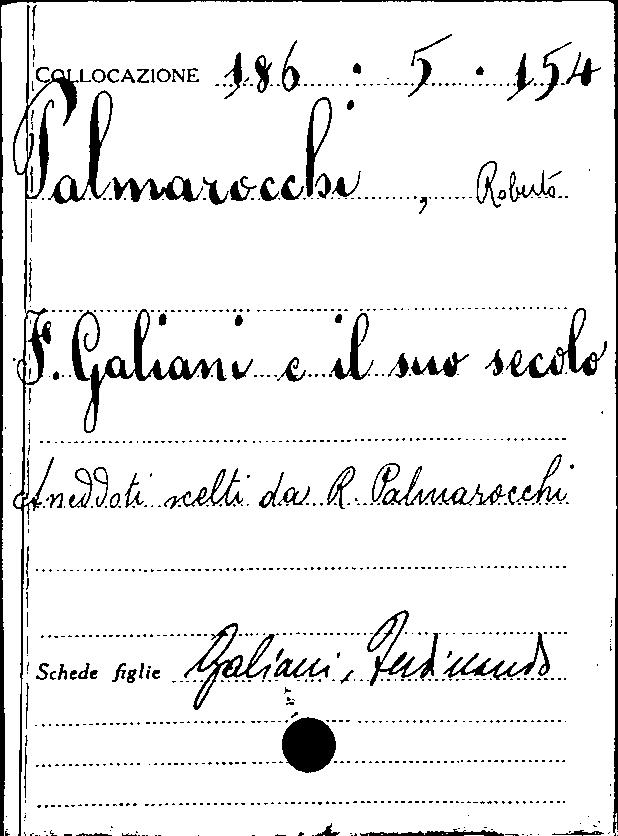 COLLOCAZIONE 186 . 5 . 154
Palmarocchi, Roberto
F. Galiani e il suo secolo
Aneddoti scelti da R. Palmarocchi
Schede figlie Galiani, Ferdinando